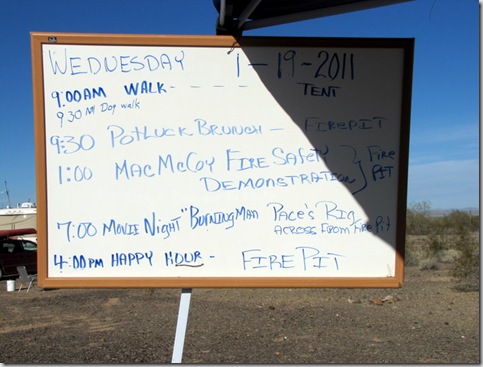 WEDNESDAY 1-19-2011
9:00AM WALK - - - - - TENT
9 30 M! Dog walk
9:30 POTLUCK BRUNCH - FIREPIT
1:00 MAC MCCOY FIRE SAFETY DEMONSTRATION } FIRE PIT
7:00 MOVIE NIGHT "BURNING MAN PACE'S RIG
ACROSS FROM FIRE PIT
4:00PM HAPPY HOUR - FIRE PIT